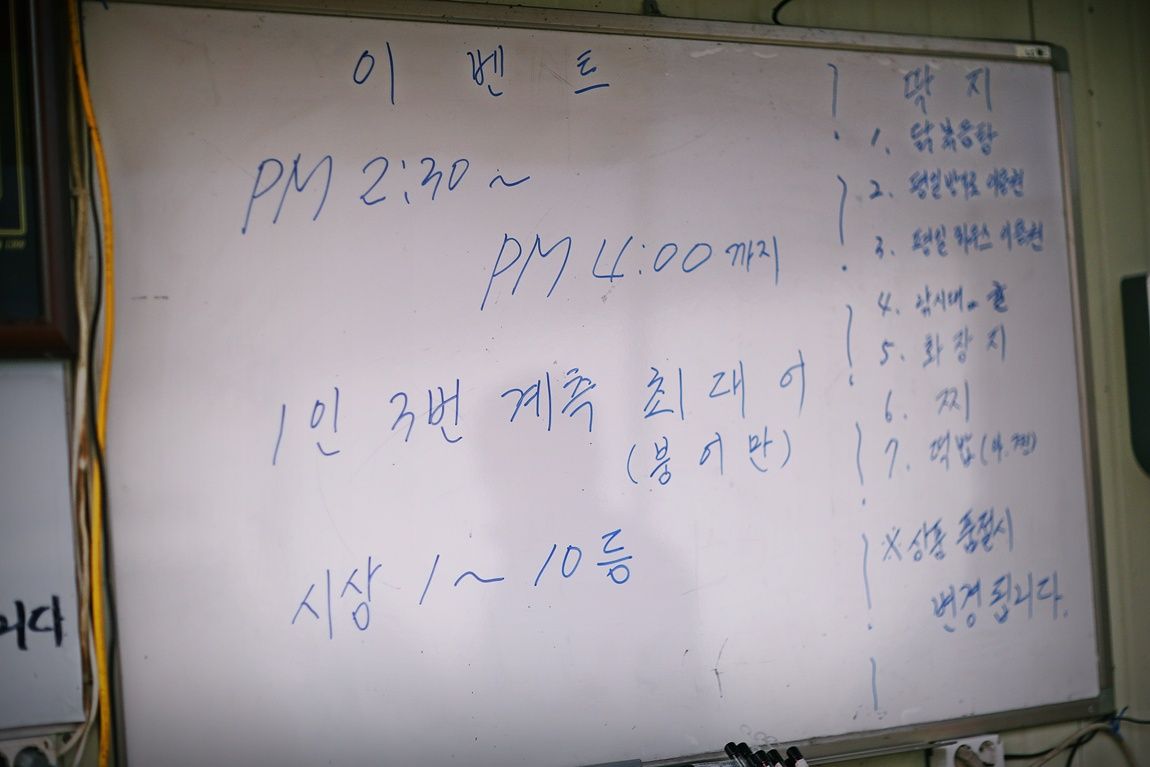 이 벤 트
PM 2:30 ~
PM 4:00 까지
1인 3번 계측 최 대 어
(붕 어 만)
시상 1 ~ 10 등
딱 지
1. 닭볶음탕
2. 평일 방갈로 이용권
3. 평일 하우스 이용권
4. 낚시대
5. 화 장 지
6. 찌
7. 떡밥
※ 상품 품절시
변경 됩니다.
니다